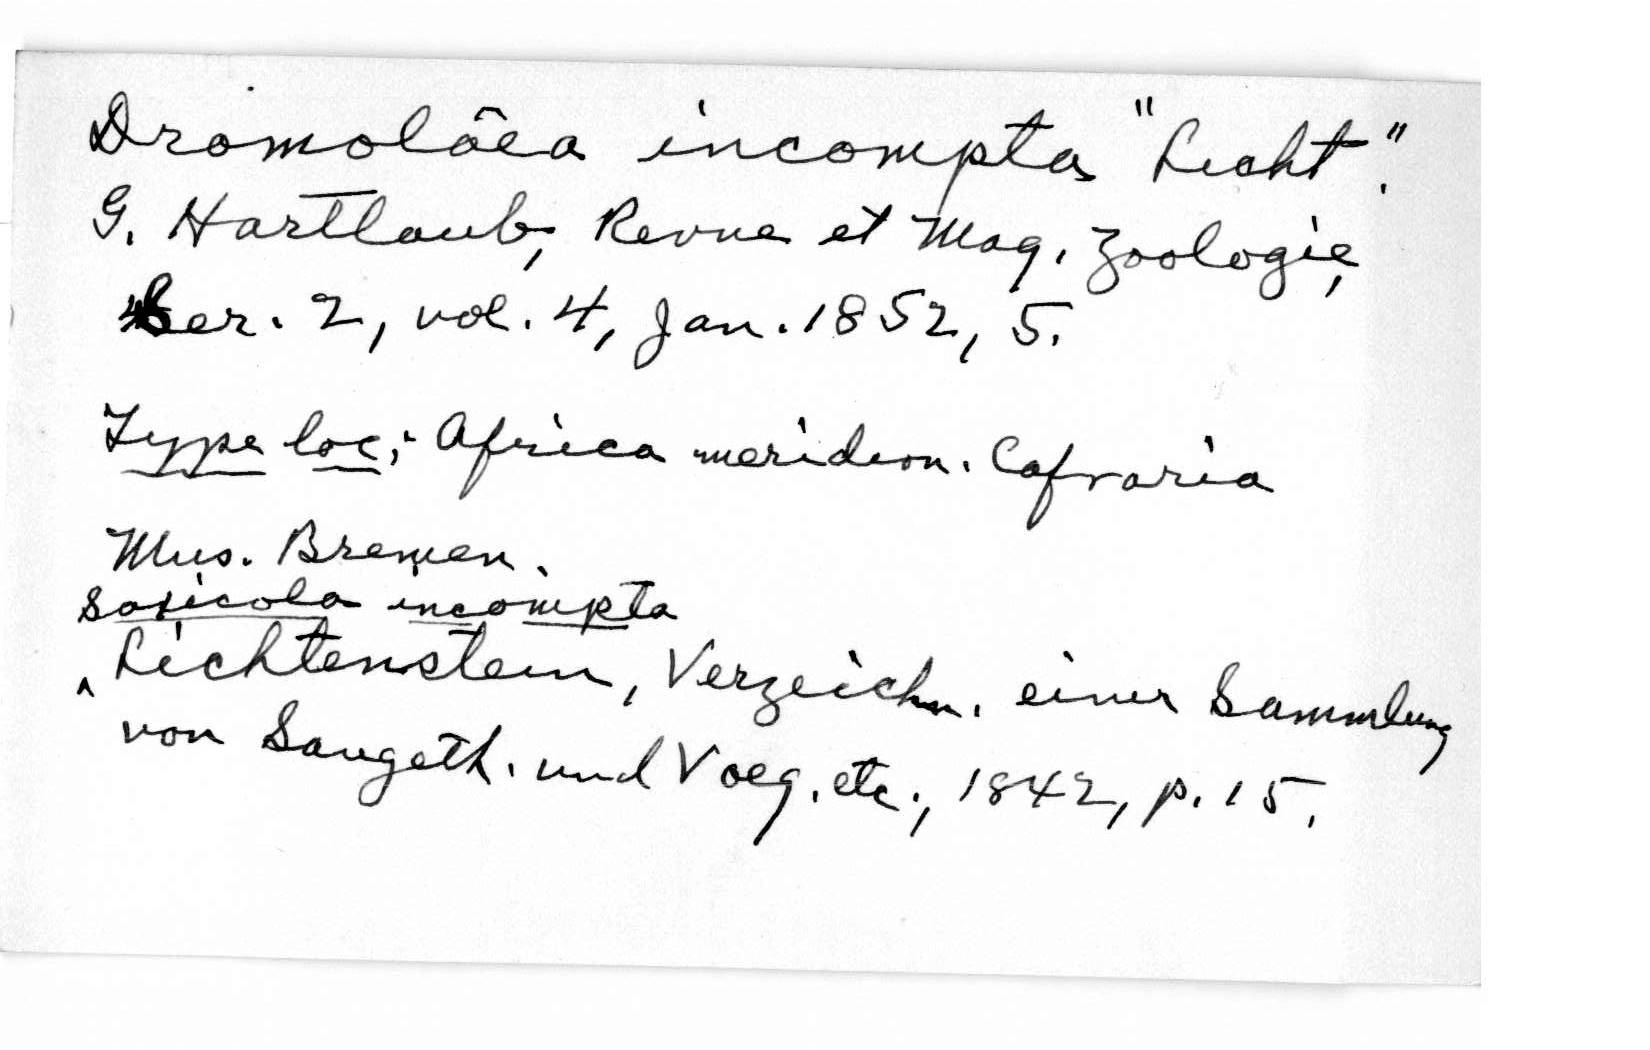 Dromolâea incompta "Licht".
G. Hartlaub, Revue et Mag. Zoologie,
Ser. 2, vol. 4, Jan. 1852, 5.
Type loc; Africa meridion. Cafraria
Mus. Bremen.
Saxicola incompta
^ Lichtenstein, Verzeichn. einer Sammlung
von Saugeth. und Voeg. etc., 1842, p. 15.